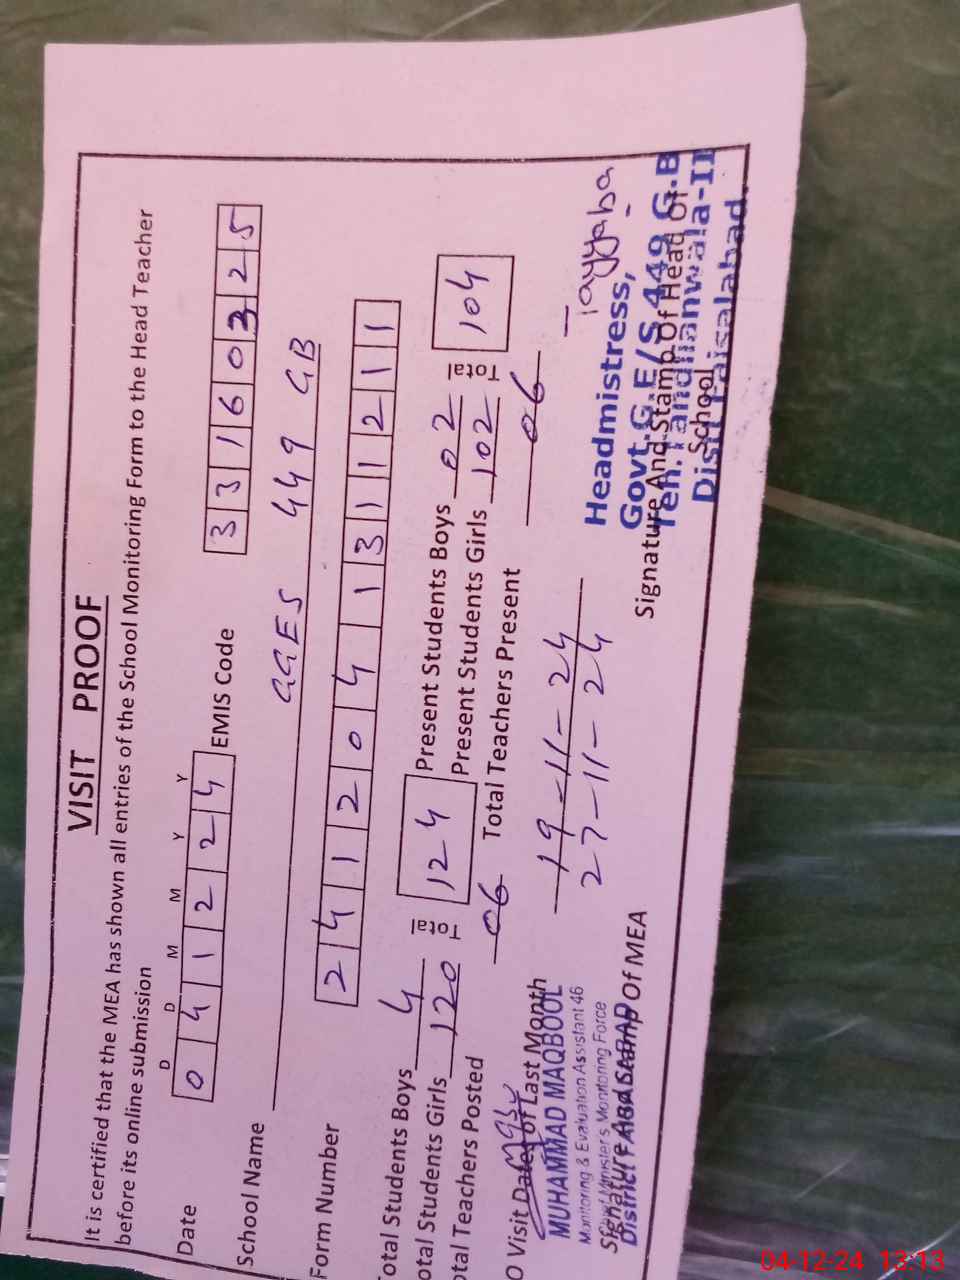 VISIT PROOF
It is certified that the MEA has shown all entries of the School Monitoring Form to the Head Teacher
before its online submission
D D M M Y Y
Date 0 4 1 2 2 4 EMIS Code 3 3 1 6 0 3 2 5
School Name GGES 449 GB
Form Number 2 4 1 1 2 0 4 1 3 1 1 2 1 1
otal Students Boys 4 Total 124 Present Students Boys 02 Total 104
otal Students Girls 120 Present Students Girls 102
otal Teachers Posted 06 Total Teachers Present 06
O Visit Dates of Last Month 19-11-24
27-11-24
MUHAMMAD MAQBOOL
Monitoring & Evaluation Assistant 46
Chief Minister's Monitoring Force
District FAISALABAD
Signature And Stamp Of MEA
Tayyaba
Headmistress,
Govt.G.E/S 449 G.B
Teh. Tandlianwala-II
Distt Faisalabad.
Signature And Stamp Of Head Of
School
04-12-24 13:13